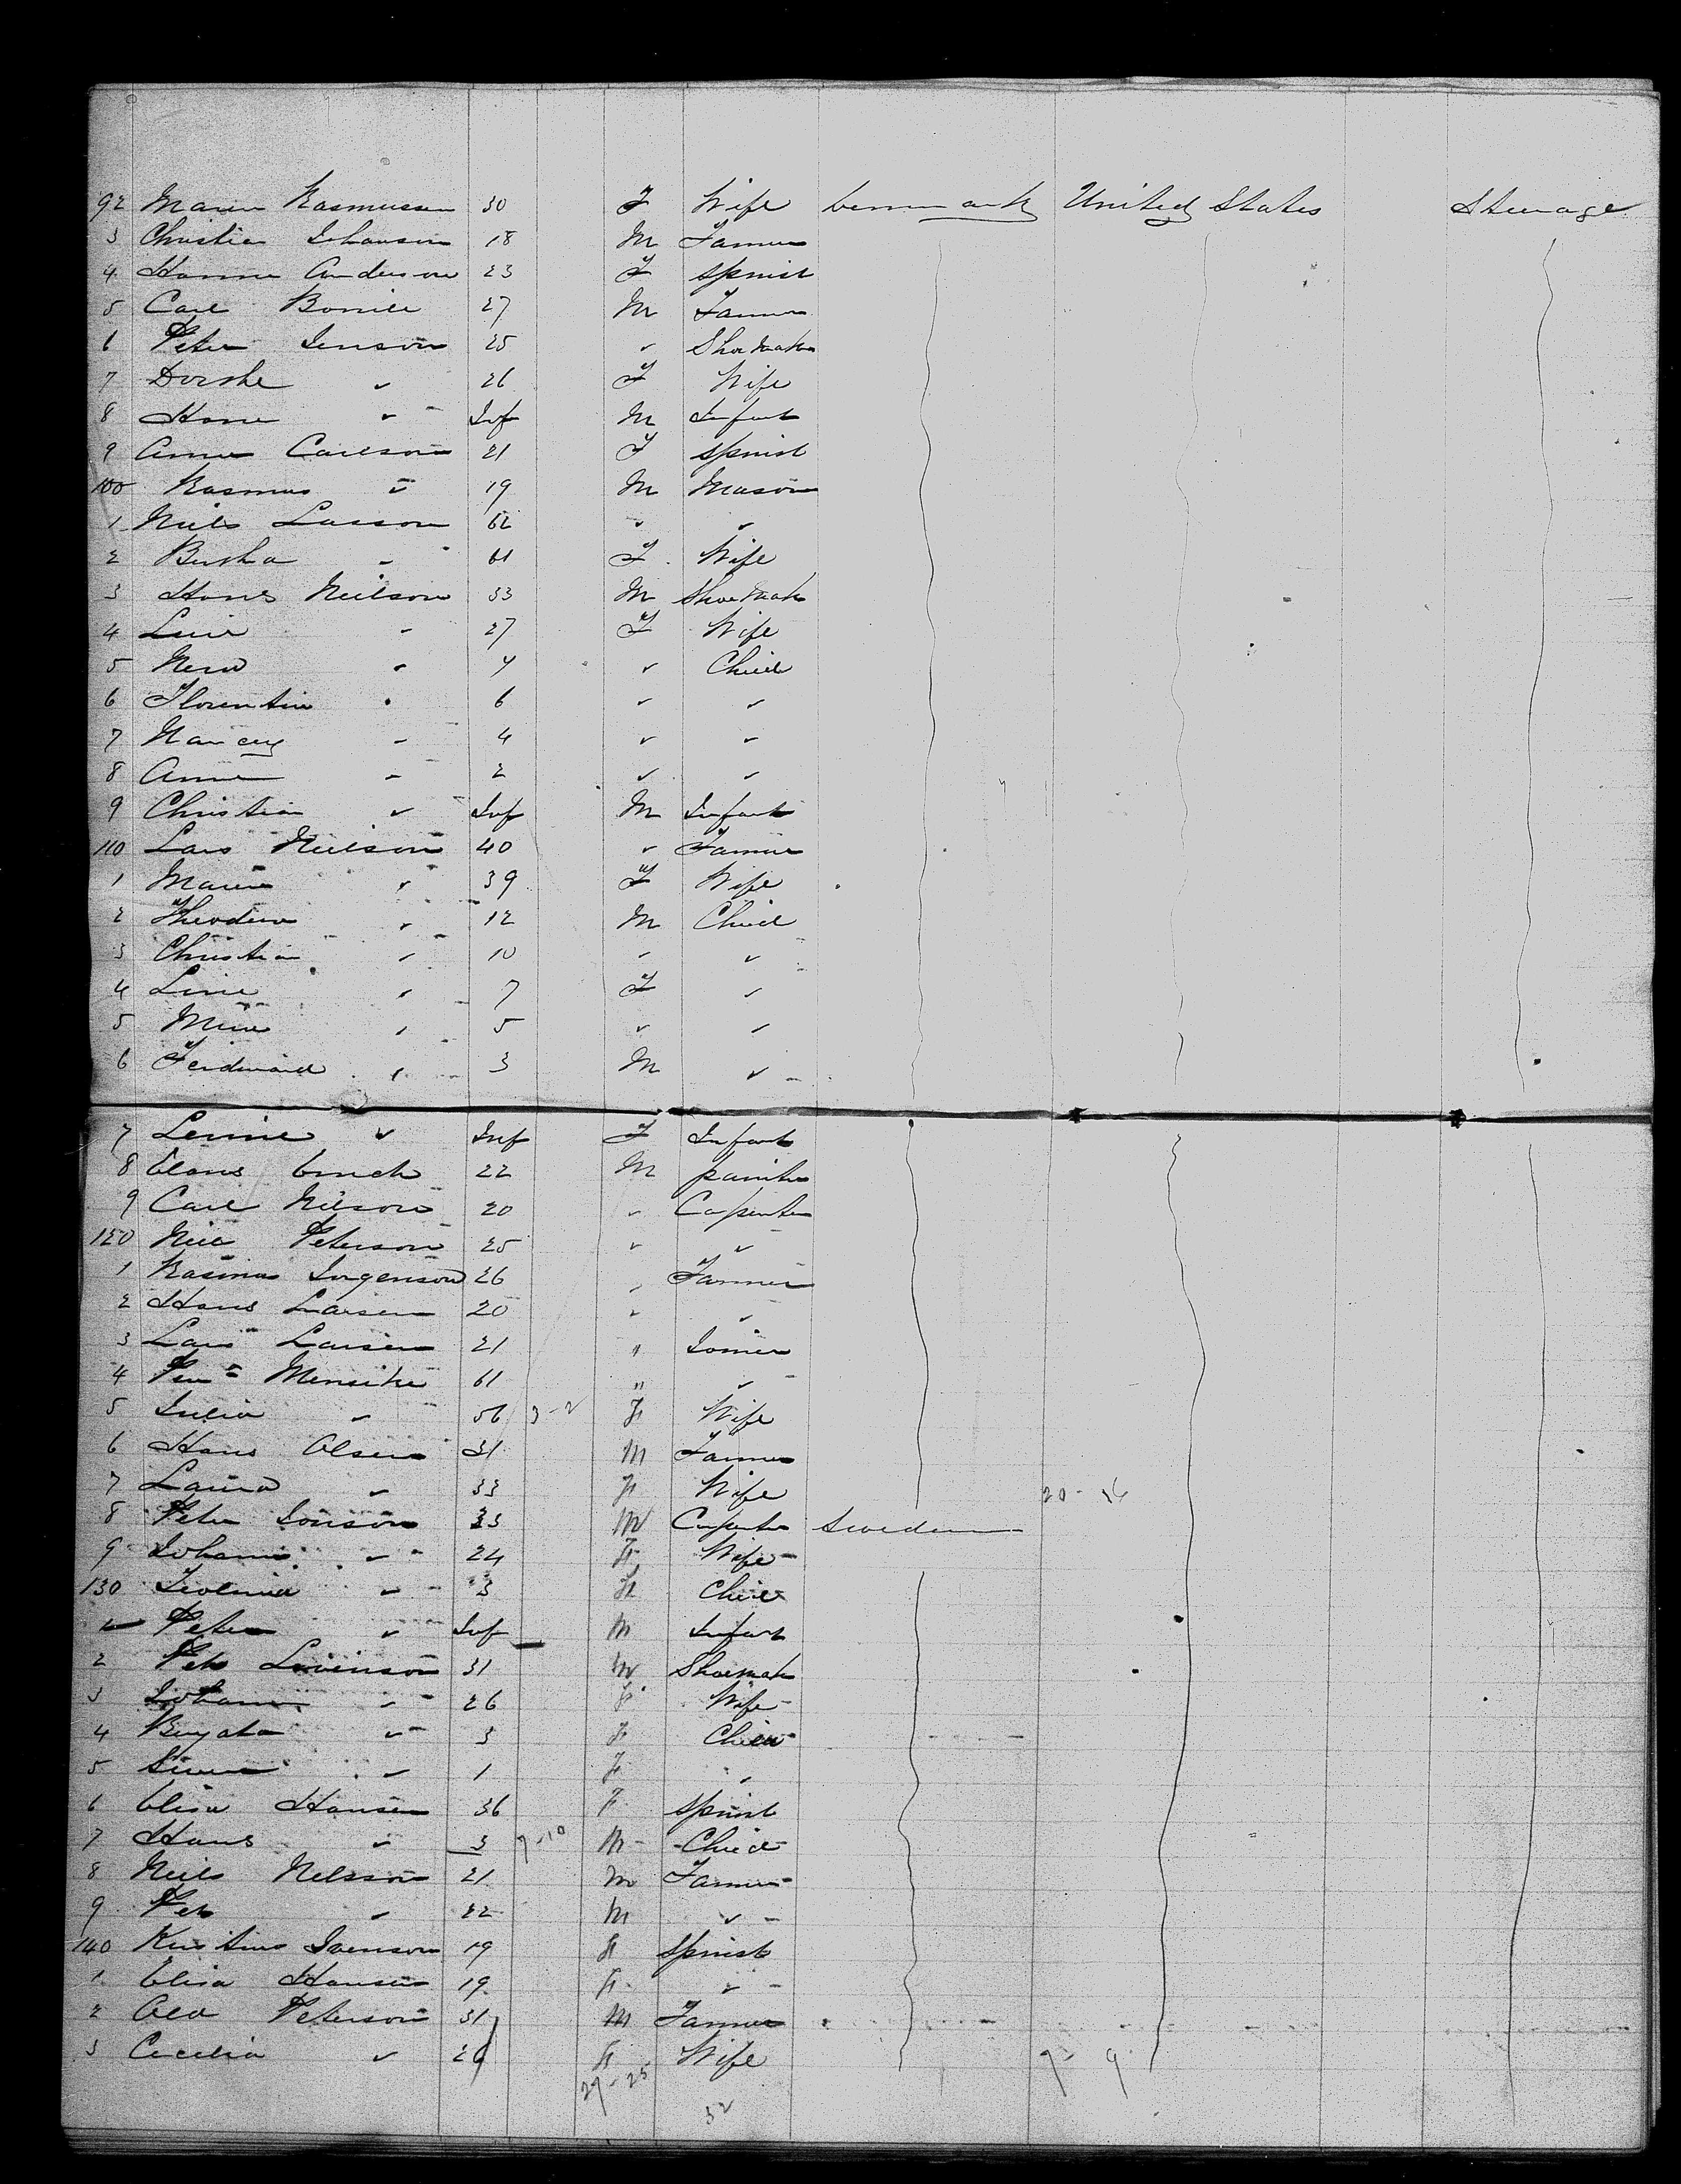 92 Maren Rasmussen 30 F Wife Denmark United States Steerage
3 Christian Johanson 18 M Farmer
4 Hanne Anderson 23 F Spinst
5 Carl 27 M Farmer
6 Peter Jenson 25 " Shoemak
7 Dorthe " 26 F Wife
8 Hans " Inf M Infant
9 Anne Carlson 21 F Spinst
100 Rasmus " 19 M Mason
1 Niels Lasson 62 " "
2 " 61 F Wife
3 Hans Neilson 33 M Shoemak
4 " 27 F Wife
5 " " Child
6 Florentine " 6 " "
7 Nancy " 4 " "
8 Anne " 2 " "
9 Christian " Inf M Infant
110 Lars Neilson 40 " Farmer
1 Maren " 39 F Wife
2 Theodore " 12 M Child
3 Christian " 10 " "
4 Line " 7 F "
5 Mine " 5 " "
6 Ferdinand " 3 M "
7 " Inf F Infant
8 Claus 22 M painter
9 Carl Nilson 20 " Carpenter
120 Peterson 25 " "
1 Rasmus Jorgenson 26 " Farmer
2 Hans Larsen 20 " "
3 Lars Larsen 21 " Joiner
4 61 " "
5 Julia " 56 3-2 F Wife
6 Hans Olsen 31 M Farmer
7 Laura " 33 F Wife 20-
8 Peter Jonson 33 M Carpenter Sweden
9 Johanne " 24 F Wife
130 " 3 F Child
1 Peter " Inf M Infant
2 Pehr 31 M Shoemak
3 Johanne " 26 F Wife
4 " 3 F Child
5 " 1 F "
6 Elisa Hansen 36 F Spinst
7 Hans " 3 7-10 M Child
8 Neils Nelsson 21 M Farmer
9 Pehr " 22 M "
140 Svenson 19 F Spinst
1 Elisa Hansen 19 F "
2 Peterson 31 M Farmer
3 Cecilia " 26 F Wife 7-9
29-25
32